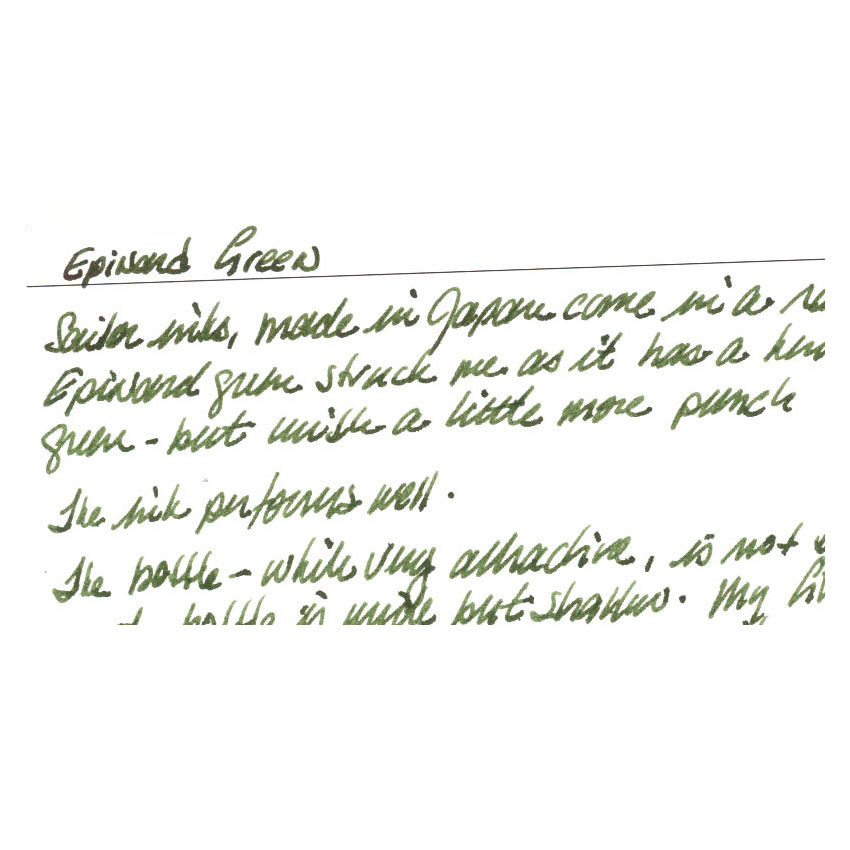 Epinard Green
Sailor inks, made in Japan come in a
Epinard green struck me as it has a
green - but with a little more punch
The ink performs well.
The bottle - while very attractive, is not
bottle is wide but shallow. My